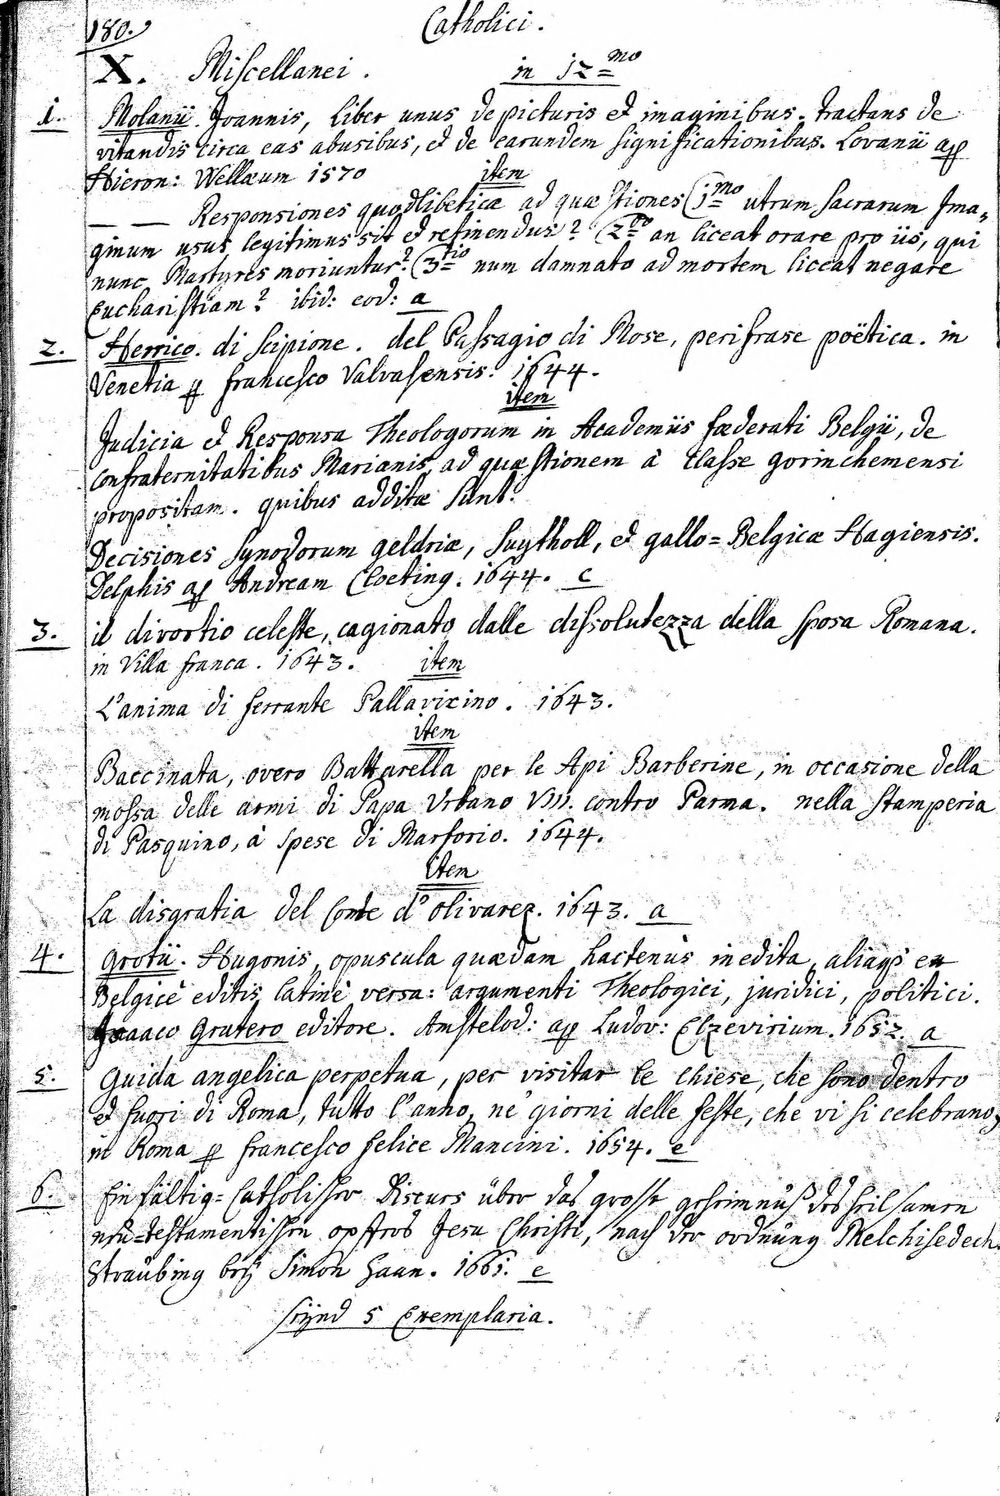 180.
Catholici.
X. Miscellanei. in 12=mo
1. Molanii Joannis, liber unus de picturis et imaginibus. tractans de
vitandis circa eas abusibus, et de earundem significationibus. Lovanii ap
Hieron: Wellæum 1570
item
— — Responsiones quodlibeticæ ad quæstiones (1=mo utrum sacrarum Ima=
ginum usus legitimus sit et retinendus? (2=do an liceat orare pro iis, qui
nunc Martyres moriuntur? (3=tio num damnato ad mortem liceat negare
Eucharistiam? ibid: eod: a
2. Herrico. di Scipione. del Passagio di Mose, perifrase poëtica. in
Venetia p francesco Valvasensis. 1644.
item
Judicia et Responsa Theologorum in Academiis fæderati Belgii, de
confraternitatibus Marianis, ad quæstionem à Classe gorinchemensi
propositam. quibus additæ sunt.
Decisiones synodorum geldriæ, Suytholl, et gallo=Belgicæ Hagiensis.
Delphis ap Andream Cloeting. 1644. c
3. il divortio celeste, cagionato dalle dissolutezza della sposa Romana.
in Villa franca. 1643. item
L'anima di ferrante Pallavicino. 1643.
item
Baccinata, overo Battarella per le Api Barberine, in occasione della
mossa delle armi di Papa Urbano VIII. contro Parma. nella stamperia
di Pasquino, à spese di Marforio. 1644.
Item
La disgratia del Conte d'olivarez. 1643. a
4. Grotii. Hugonis, opuscula quædam hactenùs inedita, aliaqs ex
Belgicè editis latinè versa: argumenti Theologici, juridici, politici.
Isaaco Grutero editore. Amstelod: ap Ludov: Elzevirium. 1652. a
5. Guida angelica perpetua, per visitar le chiese, che sono dentro
et fuori di Roma, tutto l'anno, ne' giorni delle feste, che vi si celebrano,
in Roma p francesco felice Mancini. 1654. e
6. Einfältig=Catholischer Discurs über das grosse geheimnüß des heilsamen
neü=testamentischen opffers Jesu Christi, nach der ordnung Melchisedech.
Straubing beÿ Simon Haan. 1665. e
seynd 5 Exemplaria.